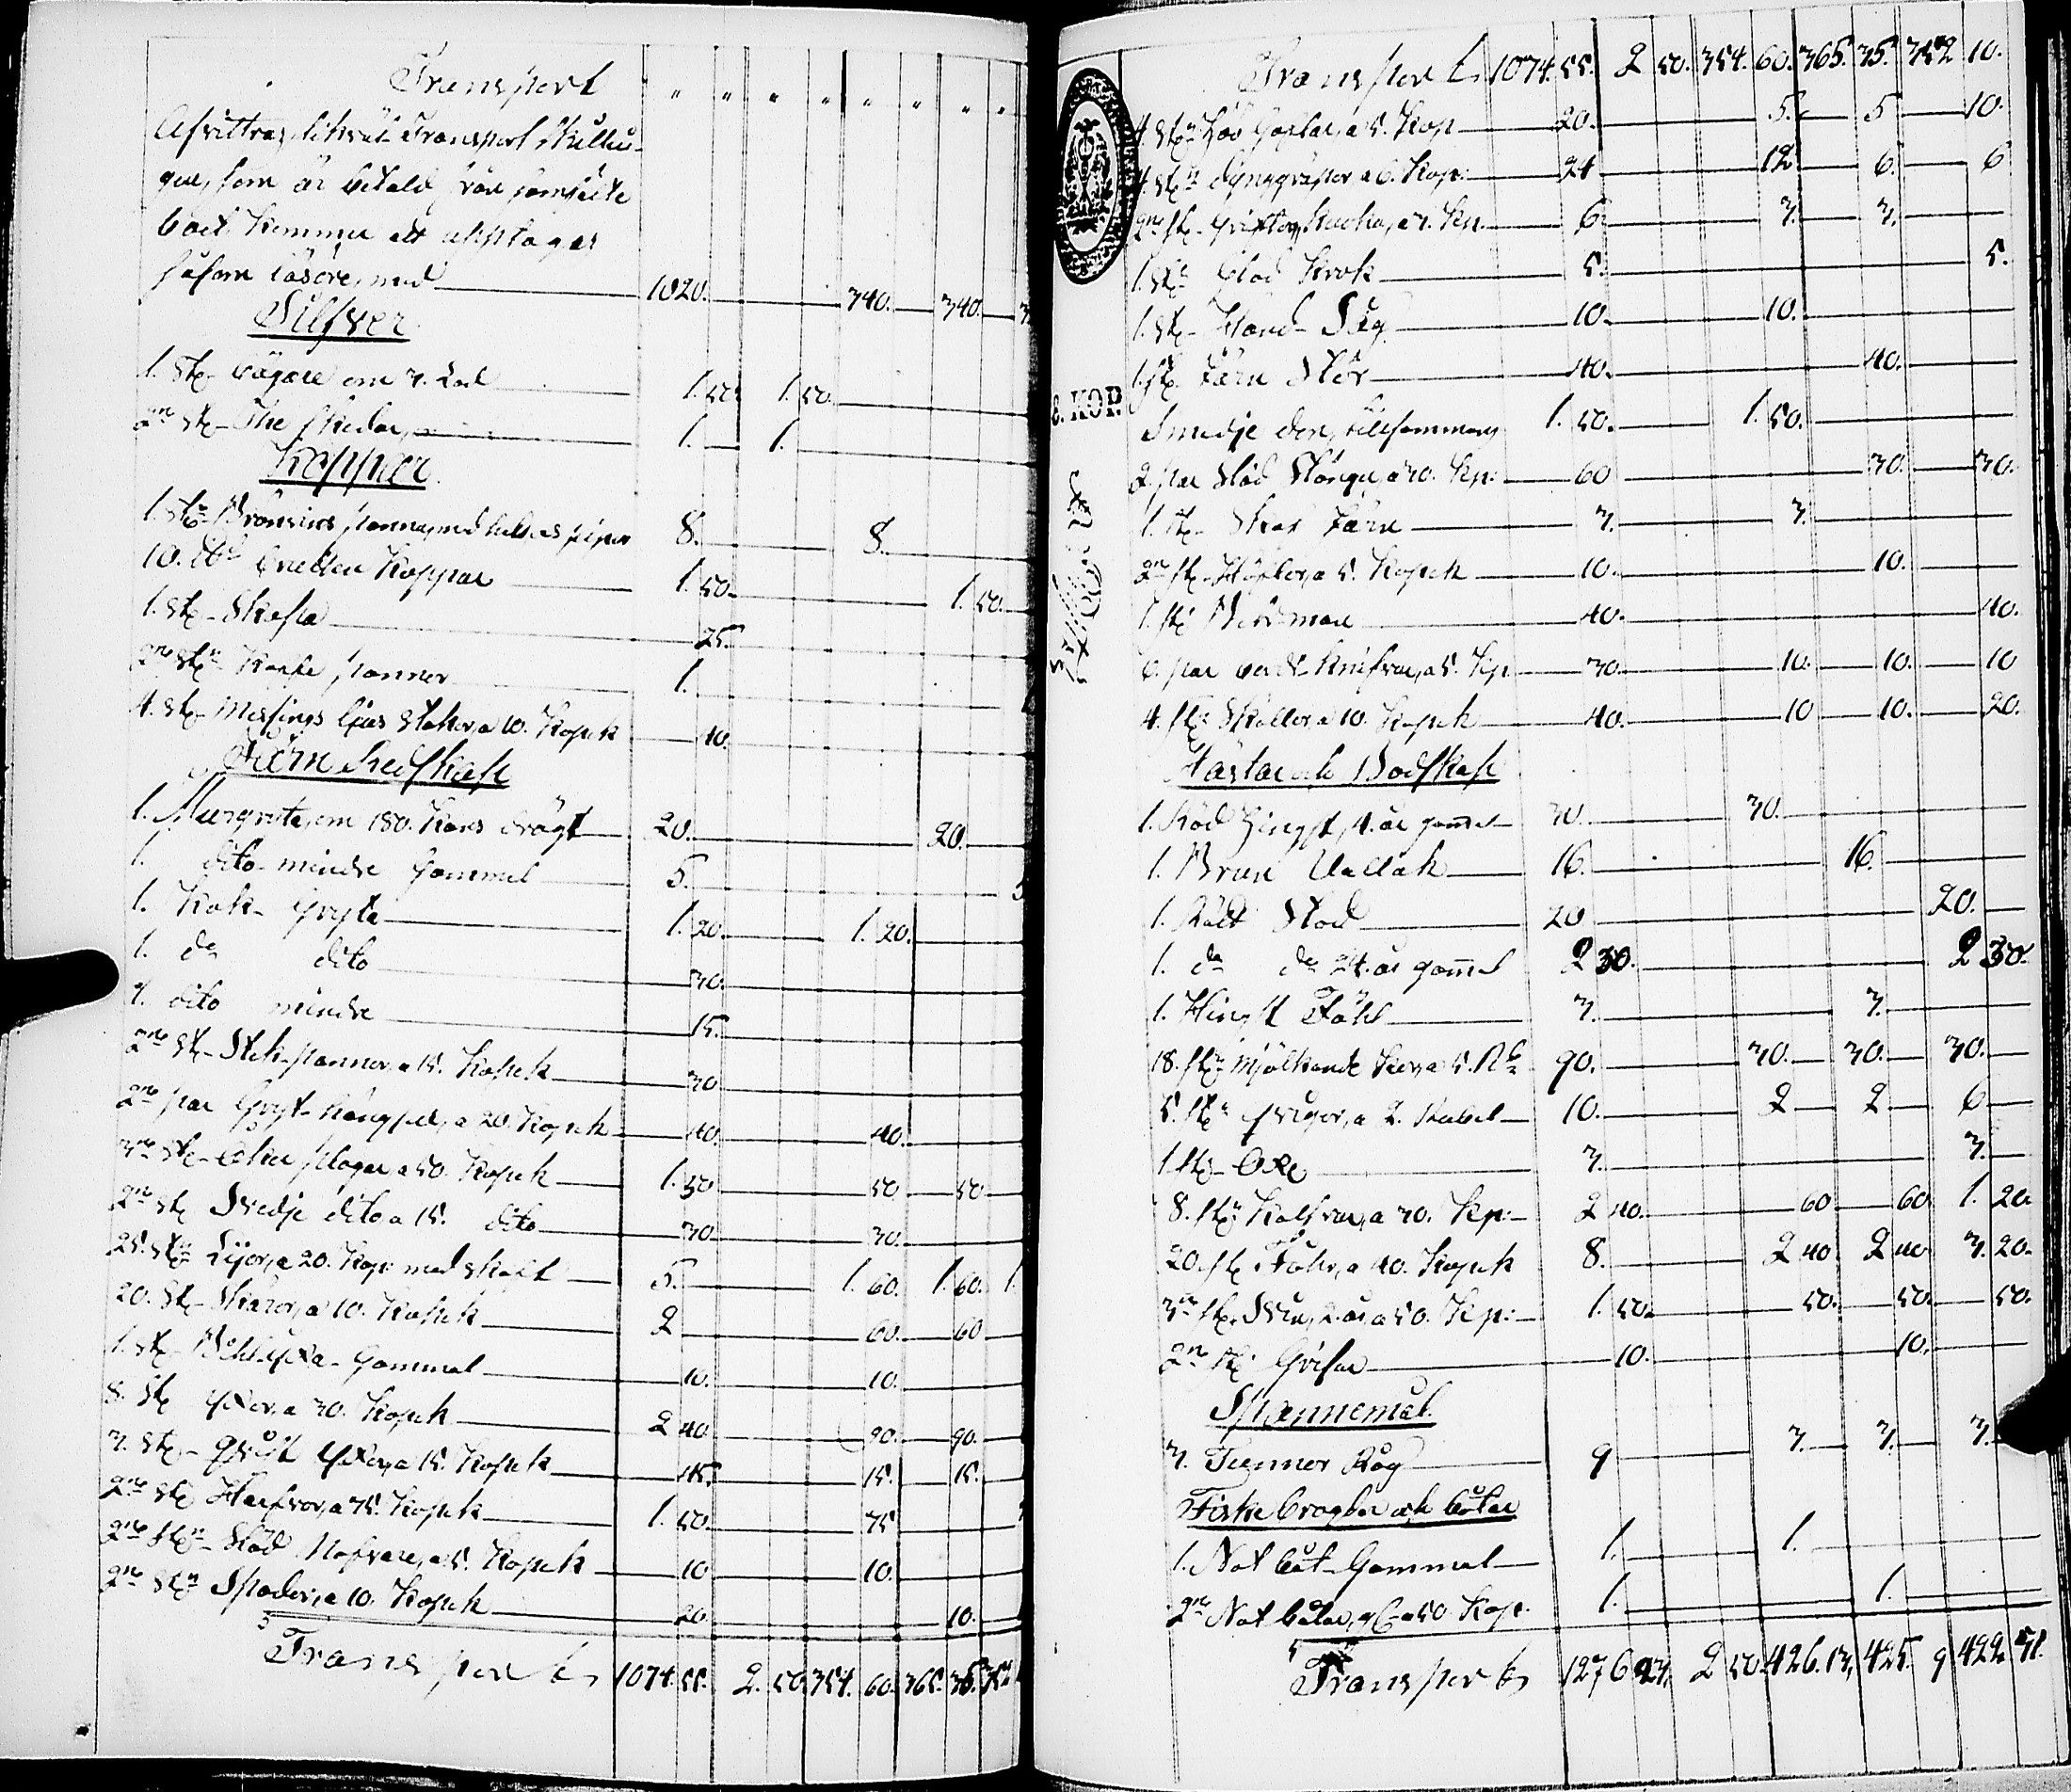 Transport " " " " " " " "
Afvittrag
gen, som är betald
bort kommer att upptagas
såsom Lösöre, med 1020. 340. 340.
Silfver
1. St. bägare om 3. Lod 1. 50. 1. 50.
2ne St. The skedar, 1. 1.
Koppar
1. St. Bränvins panna, med hatt och pipor 8. 8.
10. Koppar 1. 50. 1. 50.
1. St. Skopa 25.
2ne St. Kaffe pannor 1.
4. St. Messings ljus Stakar, a 10. Kopek 40.
Järn Redskap
1. Murgryta, om 180. Kans drägt 20. 20.
1. dito mindre Gammal 5. 5
1. Kok Gryta 1. 20. 1. 20.
1. do dito 30.
1. dito mindre 15.
2ne St. Stek pannor, a 15. Kopek 30
2ne par Gryt Kängslor, a 20. Kopek 40. 40.
3ne St. Åker plogar a 50. Kopek 1. 50 50 50
2ne St. Svedje dito a 15. dito 30 30.
25. St. Lijor, a 20. Kop: med skaft 5. 1. 60. 1. 60. 1.
20. St. Skäror, a 10. Kopek 2 60. 60
1. St. Bilyxa Gammal 10. 10.
8. St. Yxor, a 30. Kopek 2 40. 90. 90.
3. St. Qvist Yxor, a 15. Kopek 45. 15. 15.
2ne St. Harfvor, a 75. Kopek 1. 50. 75
2ne St. Stöd Nafvare, a 5. Kopek 10 10.
2ne St. Spadar, a 10. Kopek 20. 10.
Transport 1074. 55. 2. 50. 354. 60. 365. 35. 352
Transport 1074. 55. 2 50. 354. 60. 365. 35. 352 10.
4. St. a 5. Kop 20. 5. 5 10.
4. St. Dyngrepor a 6. Kop: 24 12 6. 6
2ne St. a 3. Kp. 6. 3. 3.
1. St. Krok 5. 5.
1. St. Hand Såg 10. 10.
1. St. Järn Stör 40. 40.
Smedje don, tillsammans 1. 50. 1. 50.
2. par Stöd Stänger, a 30. Kp: 60 30. 30.
1. St. Järn 3. 3.
2ne St. Hyflor, a 5. Kopek 10. 10.
1. St. Besman 40. 40.
6. par bords Knifvar, a 5. Kp 30. 10. 10. 10
4. St. a 10. Kopek 40. 10 10. 20.
Hästar och Bodskap
1. Röd Hingst, 4. år gamal 30. 30.
1. Brun Vallak 16. 16.
1. Rödt Stod 20 20.
1. do do 24. år gamal 2 30. 2 30.
1. Hingst Fåhl 3. 3.
18. St. Mjölkande Kor, a 5. Rb 90. 30. 30. 30.
5. St. qvigor, a 2. Rubel 10. 2 2 6
1. St. Oxe 3. 3.
8. St. Kalfvar, a 30. Kp: 2 40. 60 60 1. 20.
20. St. Fåhr, a 40. Kopek 8. 2 40. 2 40 3. 20.
3ne St. Svin, 2. år a 50. Kp: 1. 50. 50. 50. 50.
2ne St. Grisar 10. 10.
Spannemål
3. Tunnor Råg 9 3. 3. 3.
Fiske bragder och båtar
1. Not båt Gammal 1. 1.
2ne Not båtar, a 50. Kop. 1. 1.
Transport 1276 23. 2 50. 426. 13, 425. 9 422
8. KOP.